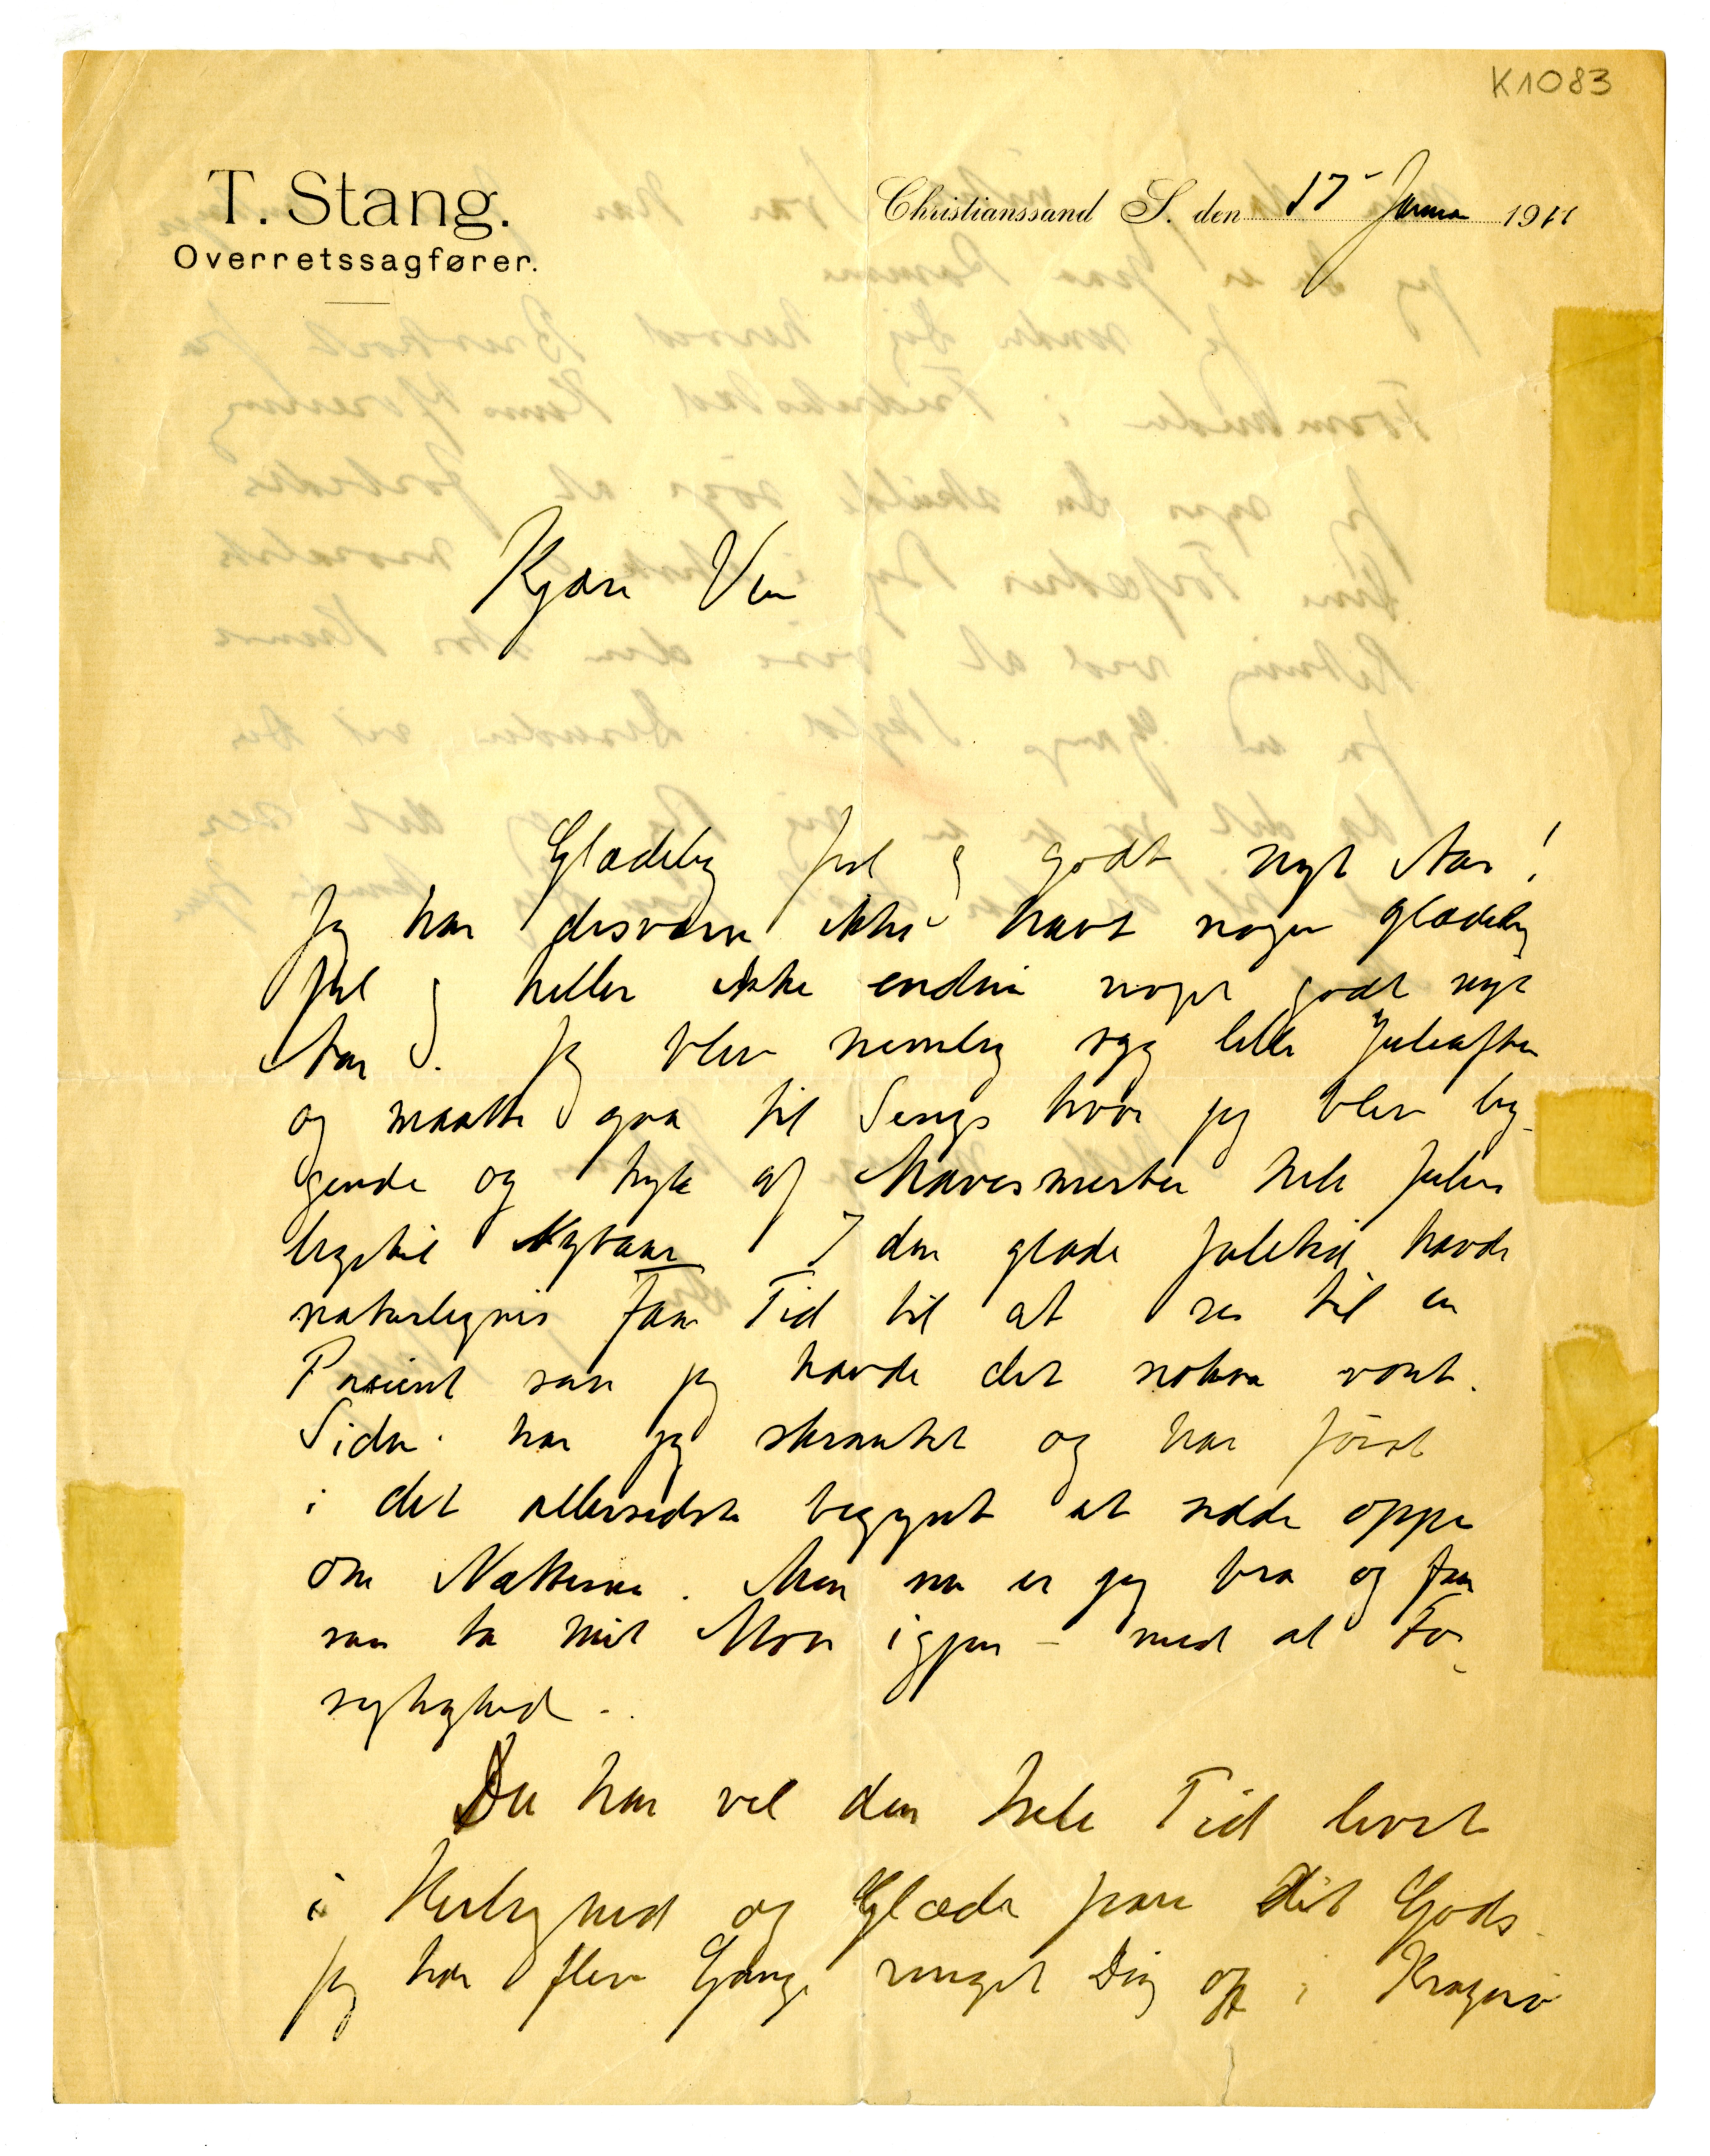 K1083
T. Stang.
Overretssagfører.
Christianssand S. den 17 Januar 1911
Kjære Ven
Glædelig Jul og godt nyt Aar!
Jeg har desværre ikke havt nogen glædelig
Jul og heller ikke endnu noget godt nyt
Aar. Jeg blev nemlig syg lille Juleaften
og maatte gaa til Sengs hvor jeg blev lig-
gende og hyle af Mavesmerter hele Julen
ligetil Nytaar I den glade Juletid havde
naturligvis faa Tid til at se til en
Pasient saa jeg havde det nokaa vont.
Siden har jeg skrantet og har først
i det allersidste begyndt at sidde oppe
om Nætterne. Men nu er jeg bra og faar
saa ta mit Mon igjen – med al For-
sigtighed.
Du har vel den hele Tid levet
i Herlighed og Glæde paa dit Gods.
Jeg har flere Gange ringet Dig op i Kragerø